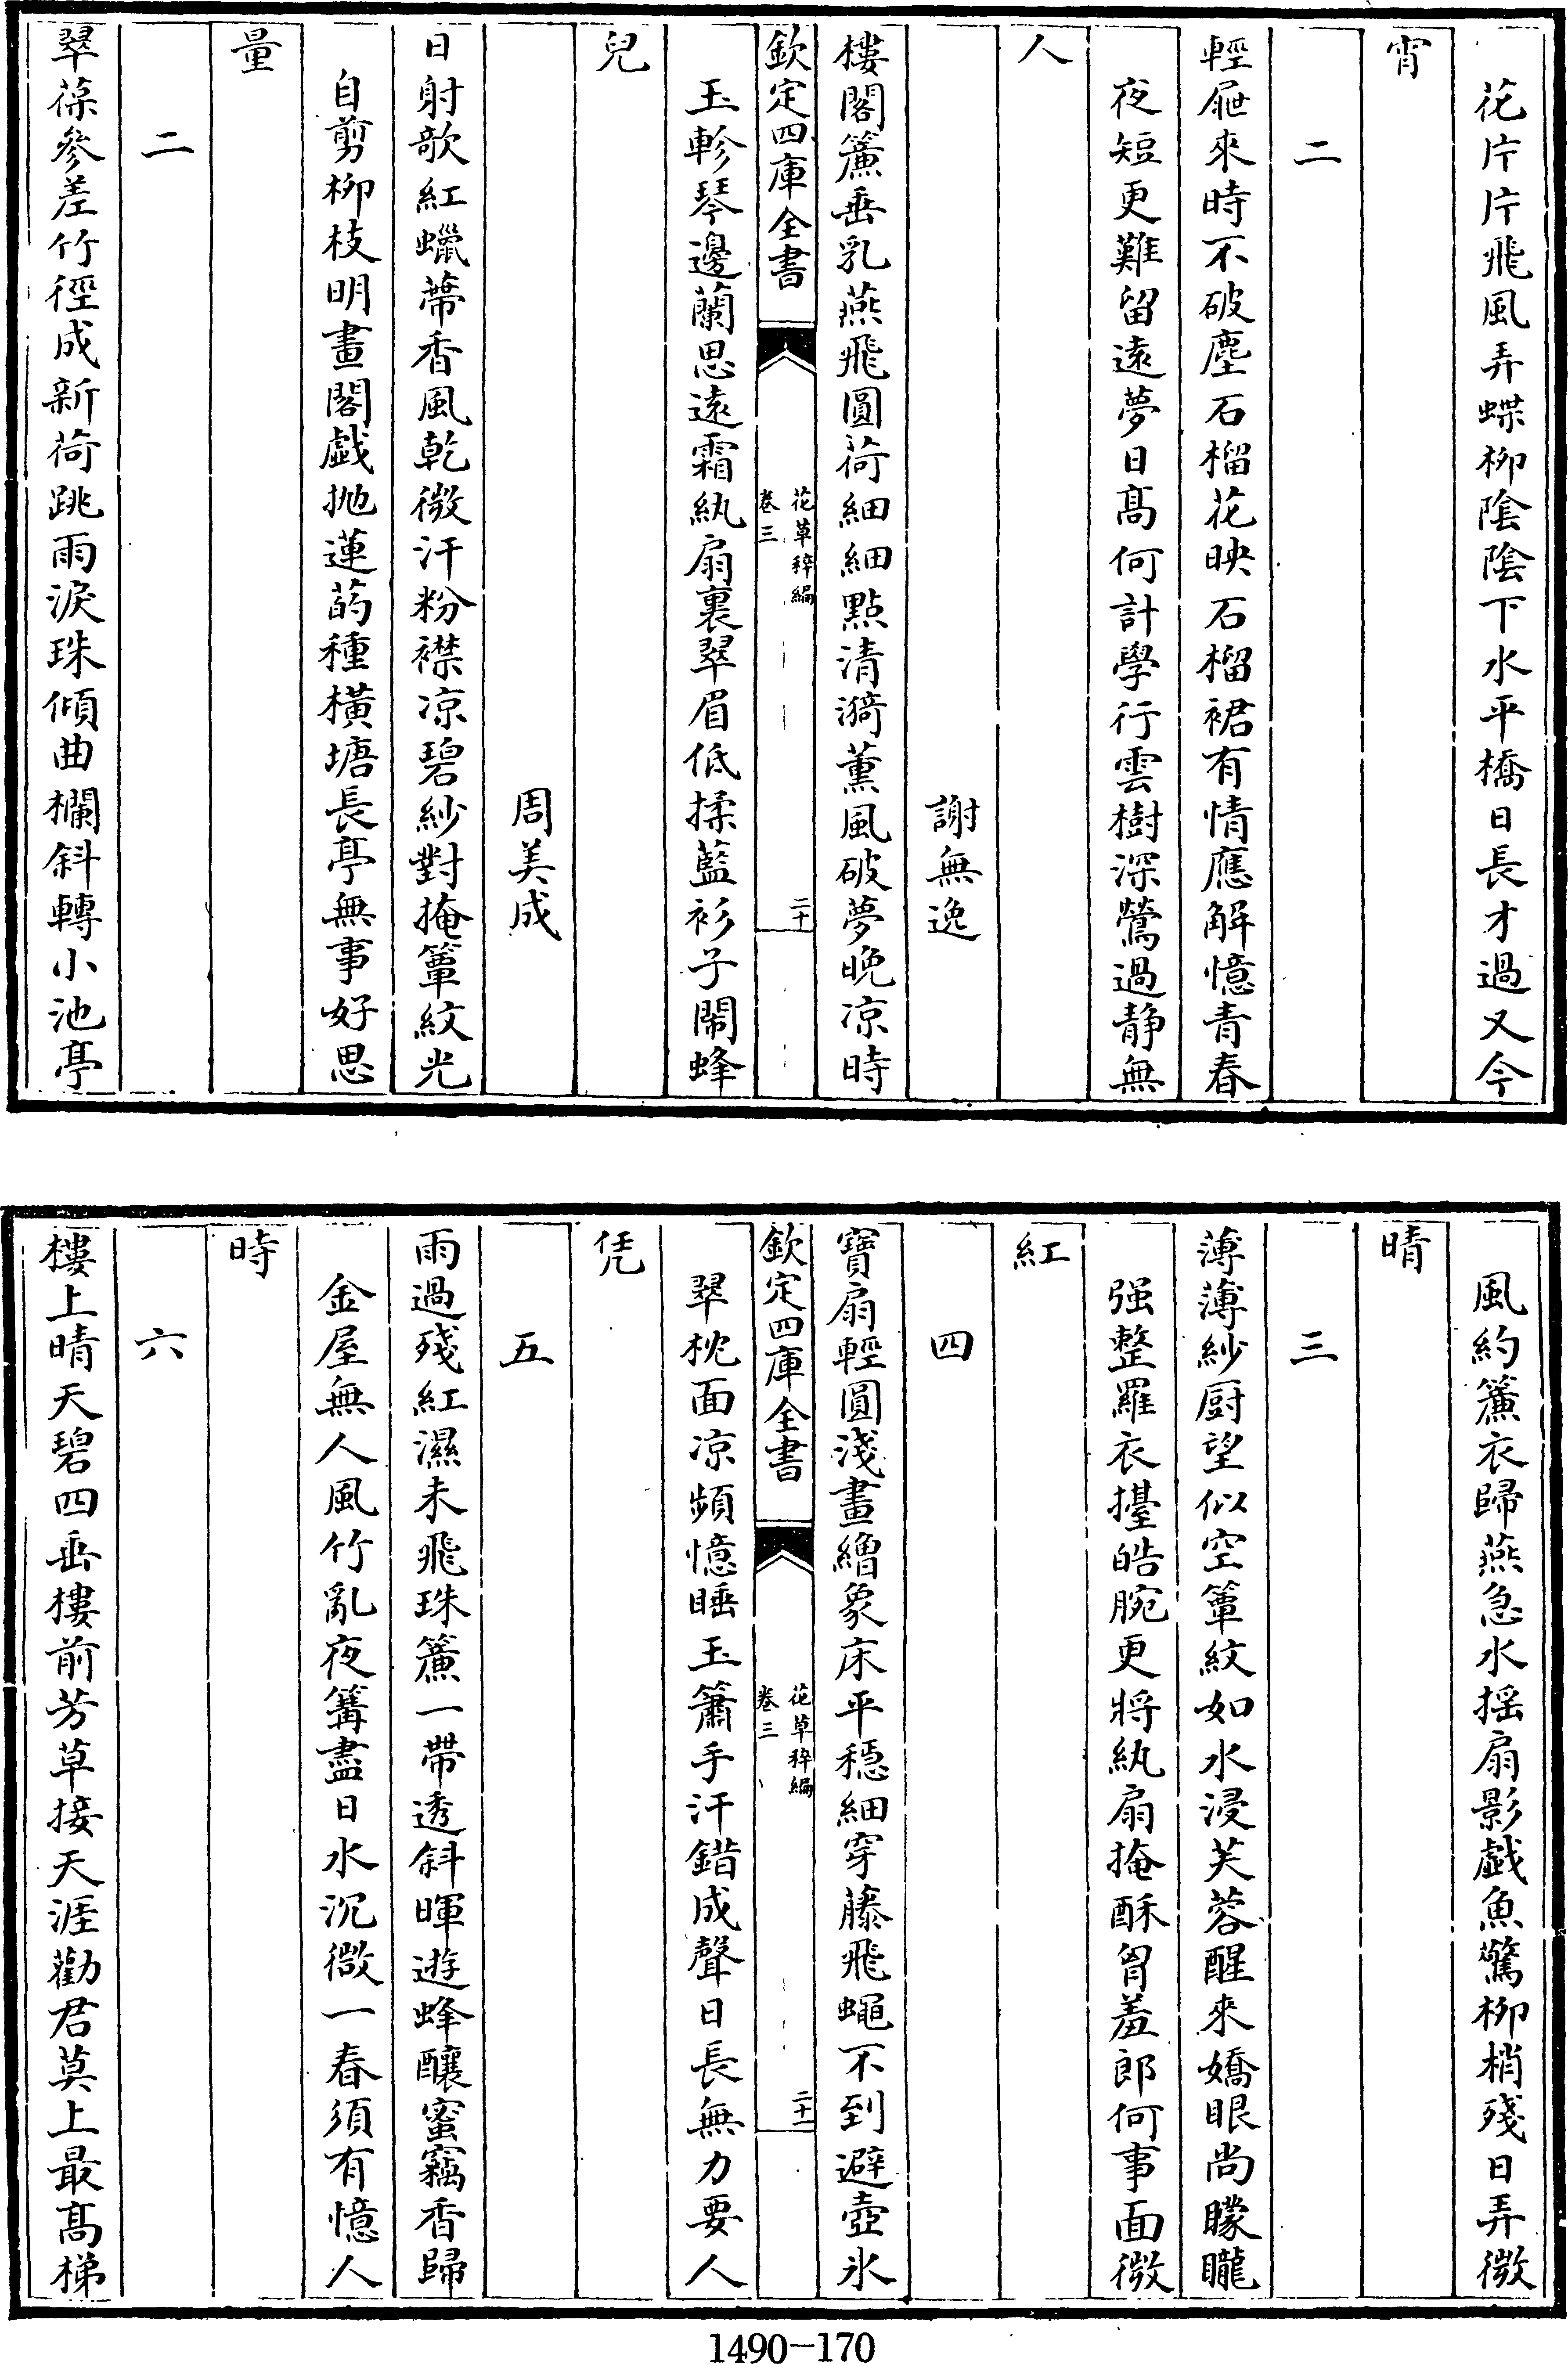 花片片飛風弄蝶柳陰陰下水平橋日長才過又今
宵
二
輕屣來時不破塵石榴花映石榴裙有情應解憶青春
夜短更難留遠夢日髙何計學行雲樹深鶯過靜無
人
謝無逸
樓閣簾垂乳燕飛圓荷細細點清漪薰風破夢晚凉時
欽定四庫全書
花草稡編
卷三
二十
玉軫琴邊蘭思遠霜紈扇裏翠眉低揉藍衫子閙蜂
兒
周美成
日射欹紅蠟蔕香風乾微汗粉襟凉碧紗對掩簟紋光
自剪柳枝明畫閣戯抛蓮菂種橫塘長亭無事好思
量
二
翠葆參差竹徑成新荷跳雨淚珠傾曲欄斜轉小池亭
風約簾衣歸燕急水揺扇影戯魚驚柳梢殘日弄微
晴
三
薄薄紗厨望似空簟紋如水浸芙蓉醒來嬌眼尚矇矓
强整羅衣擡皓腕更將紈扇掩酥胷羞郎何事面微
紅
四
寶扇輕圓淺畫繒象床平穏細穿藤飛蠅不到避壺氷
欽定四庫全書
花草稡編
卷三
二十一
翠枕面凉頻憶睡玉簫手汗錯成聲日長無力要人
凭
五
雨過殘紅濕未飛珠簾一帶透斜暉遊蜂釀蜜竊香歸
金屋無人風竹亂夜篝盡日水沉微一春須有憶人
時
六
樓上晴天碧四垂樓前芳草接天涯勸君莫上最髙梯
1490-170